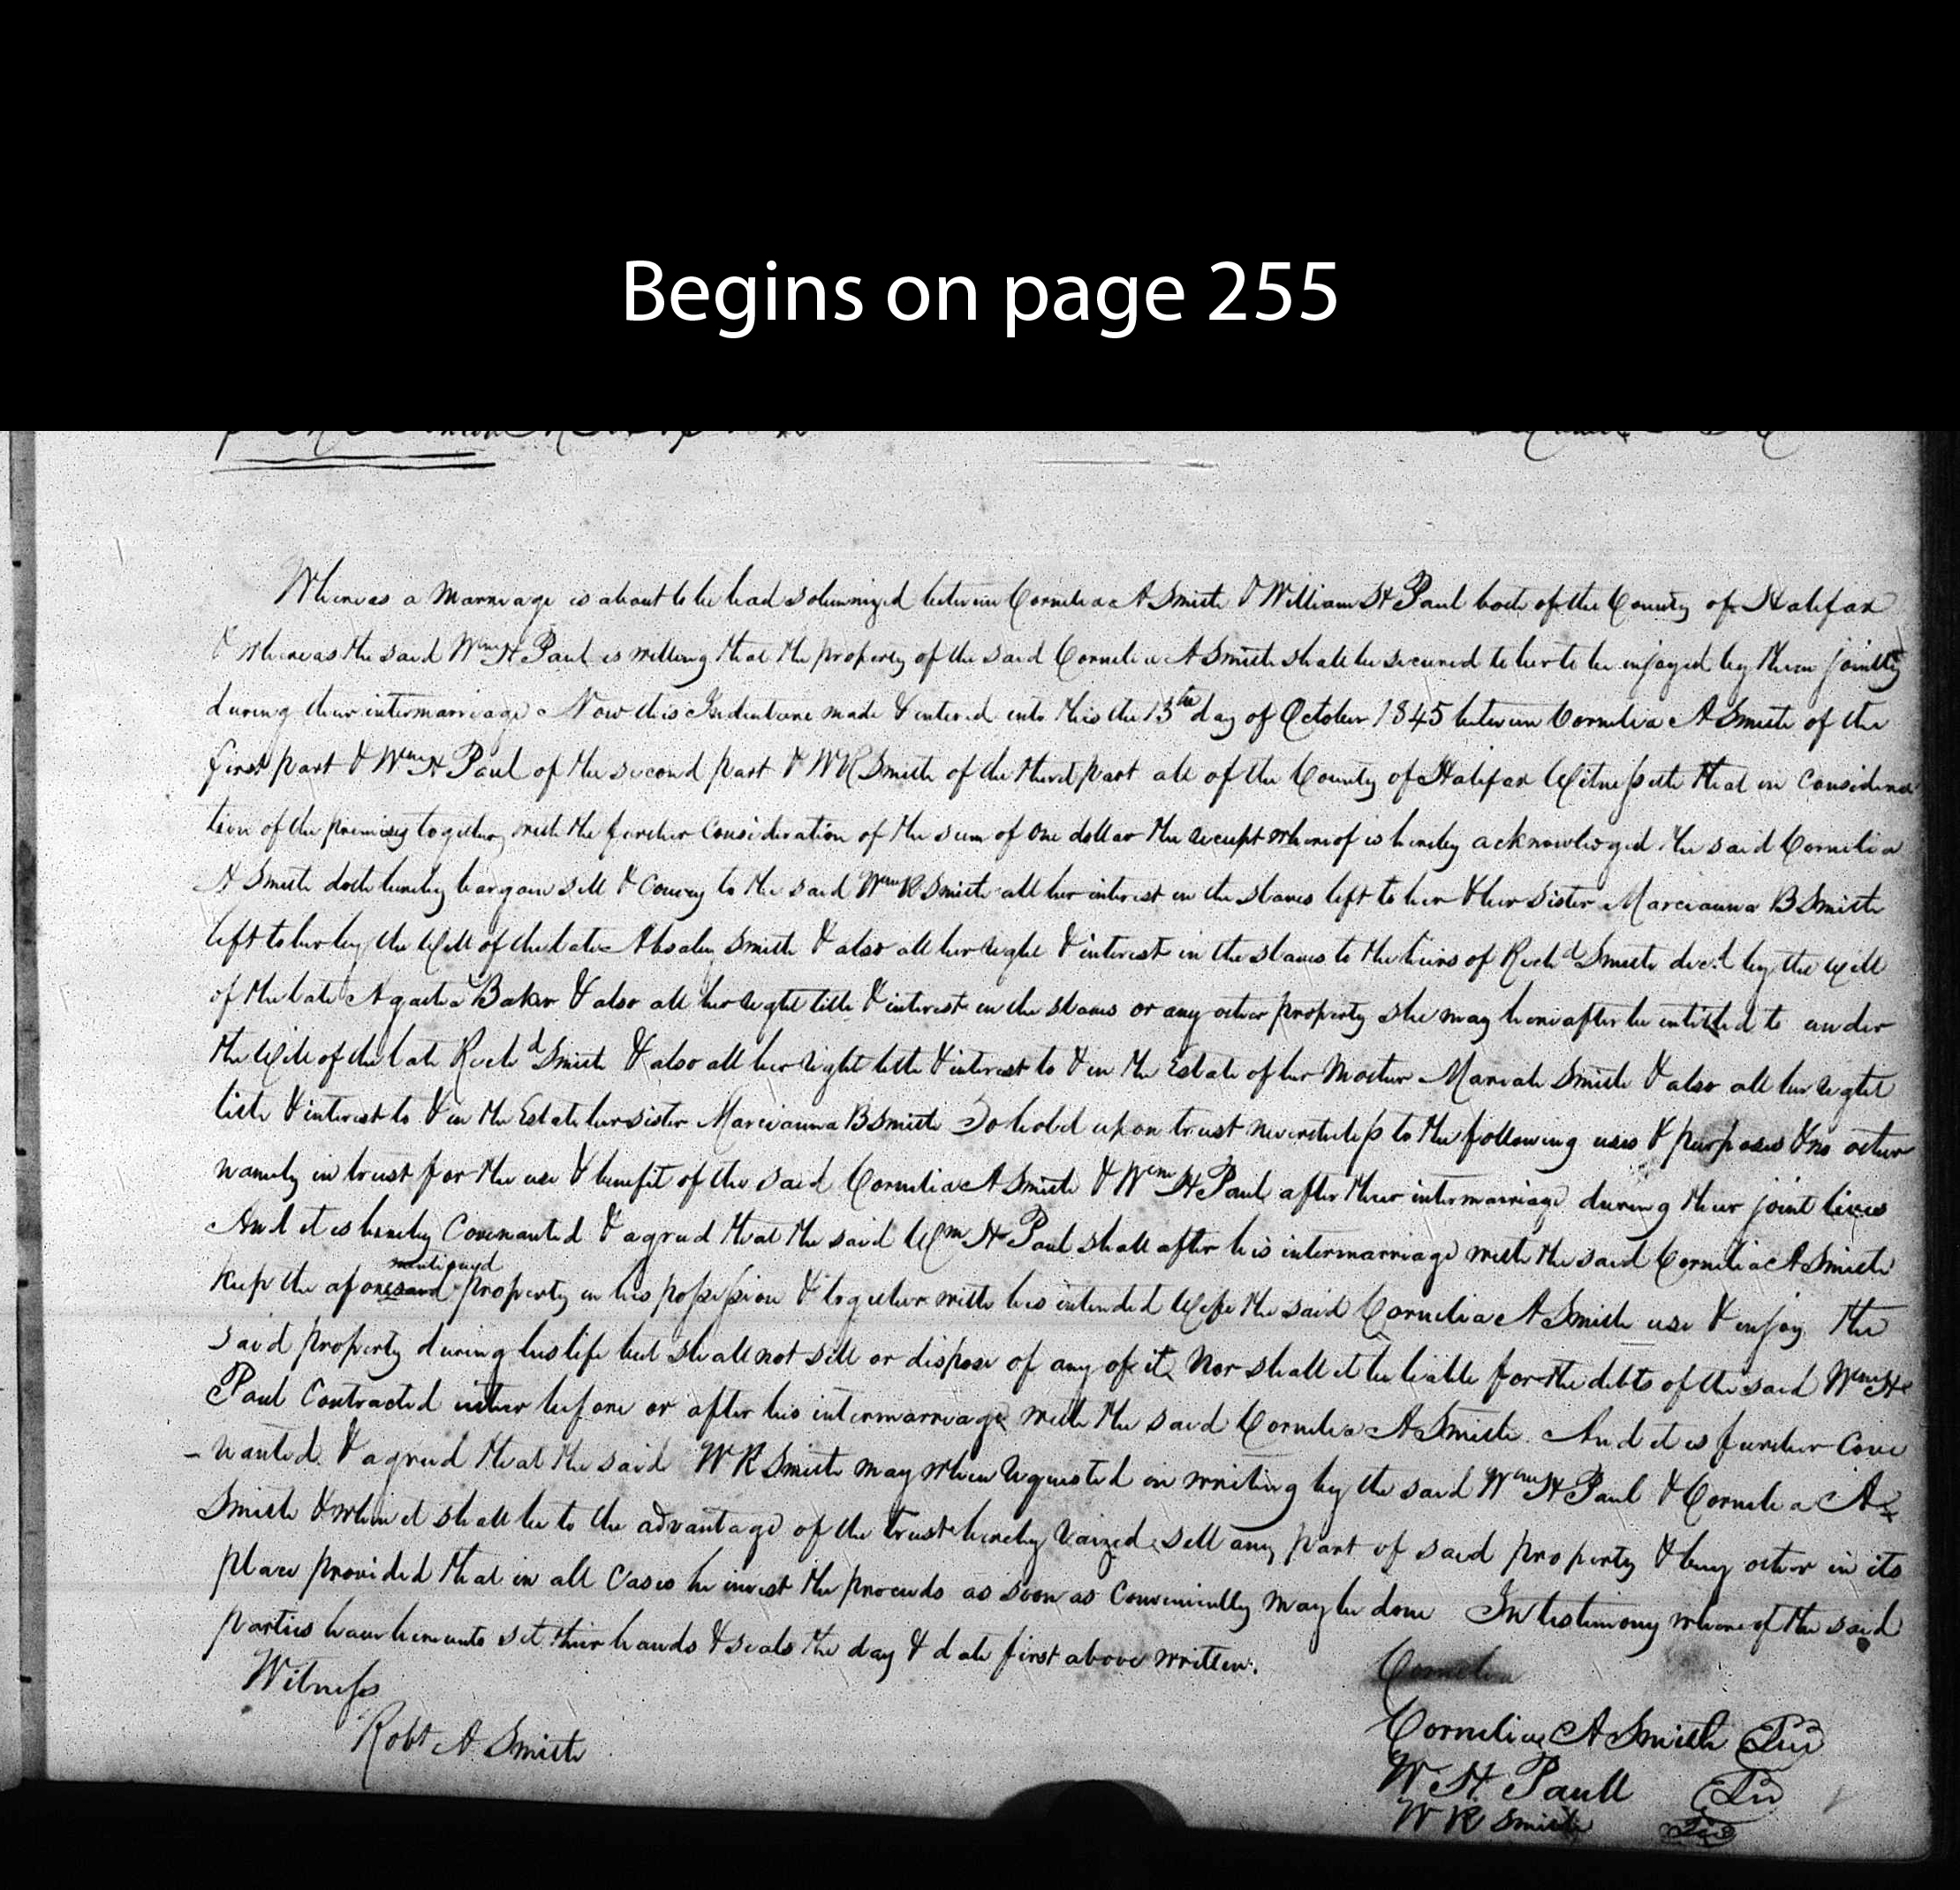 Begins on page 255
Whereas a marriage is about to be had solemnized between Cornelia A Smith & William H Paul both of the County of Halifax
& whereas the said Wm H Paul is willing that the property of the said Cornelia A Smith shall be secured to her to be enjoyed by them jointly
during their intermarriage Now this Indenture made & entered into this the 13th day of October 1845 between Cornelia A Smith of the
first part & Wm H Paul of the second part & W R Smith of the third part all of the County of Halifax Witnesseth that in considera
tion of the premises together with the further Consideration of the sum of one dollar the receipt whereof is hereby acknowledged the said Cornelia
A Smith doth hereby bargain sell & Convey to the said Wm R Smith all her interest in the slaves left to her & her sister Marcianna B Smith
left to her by the Will of the late Absaley Smith & also all her right & interest in the slaves to the heirs of Richd Smith decd by the Will
of the late Agatha Baker & also all her right title & interest in the slaves or any other property she may hereafter be entitled to under
the Will of the late Richd Smith & also all her right title & interest to & in the Estate of her Mother Mariah Smith & also all her right
title & interest to & in the Estate her sister Marcianna B Smith To hold upon trust nevertheless to the following uses & purposes & no other
namely in trust for the use & benefit of the said Cornelia A Smith & Wm H Paul after their intermarriage during their joint lives
And it is hereby Covenanted & agreed that the said Wm H Paul shall after his intermarriage with the said Cornelia A Smith
mentioned
keep the aforesaid property in his possession & together with his intended Wife the said Cornelia A Smith use & enjoy the
said property during his life but shall not sell or dispose of any of it Nor shall it be liable for the debts of the said Wm H
Paul Contracted either before or after his intermarriage with the said Cornelia A Smith. And it is further Cove
-nanted & agreed that the said W R Smith may when requested in writing by the said Wm H Paul & Cornelia A
Smith & when it shall be to the advantage of the trust hereby raized sell any part of said property & buy other in its
place provided that in all Cases he invest the proceeds as soon as Conveniently may be done In testimony whereof the said
parties have hereunto set their hands & seals the day & date first above written.
Witness
Cornelia
Robt A Smith
Cornelia A Smith
W H. Paull
W R Smith